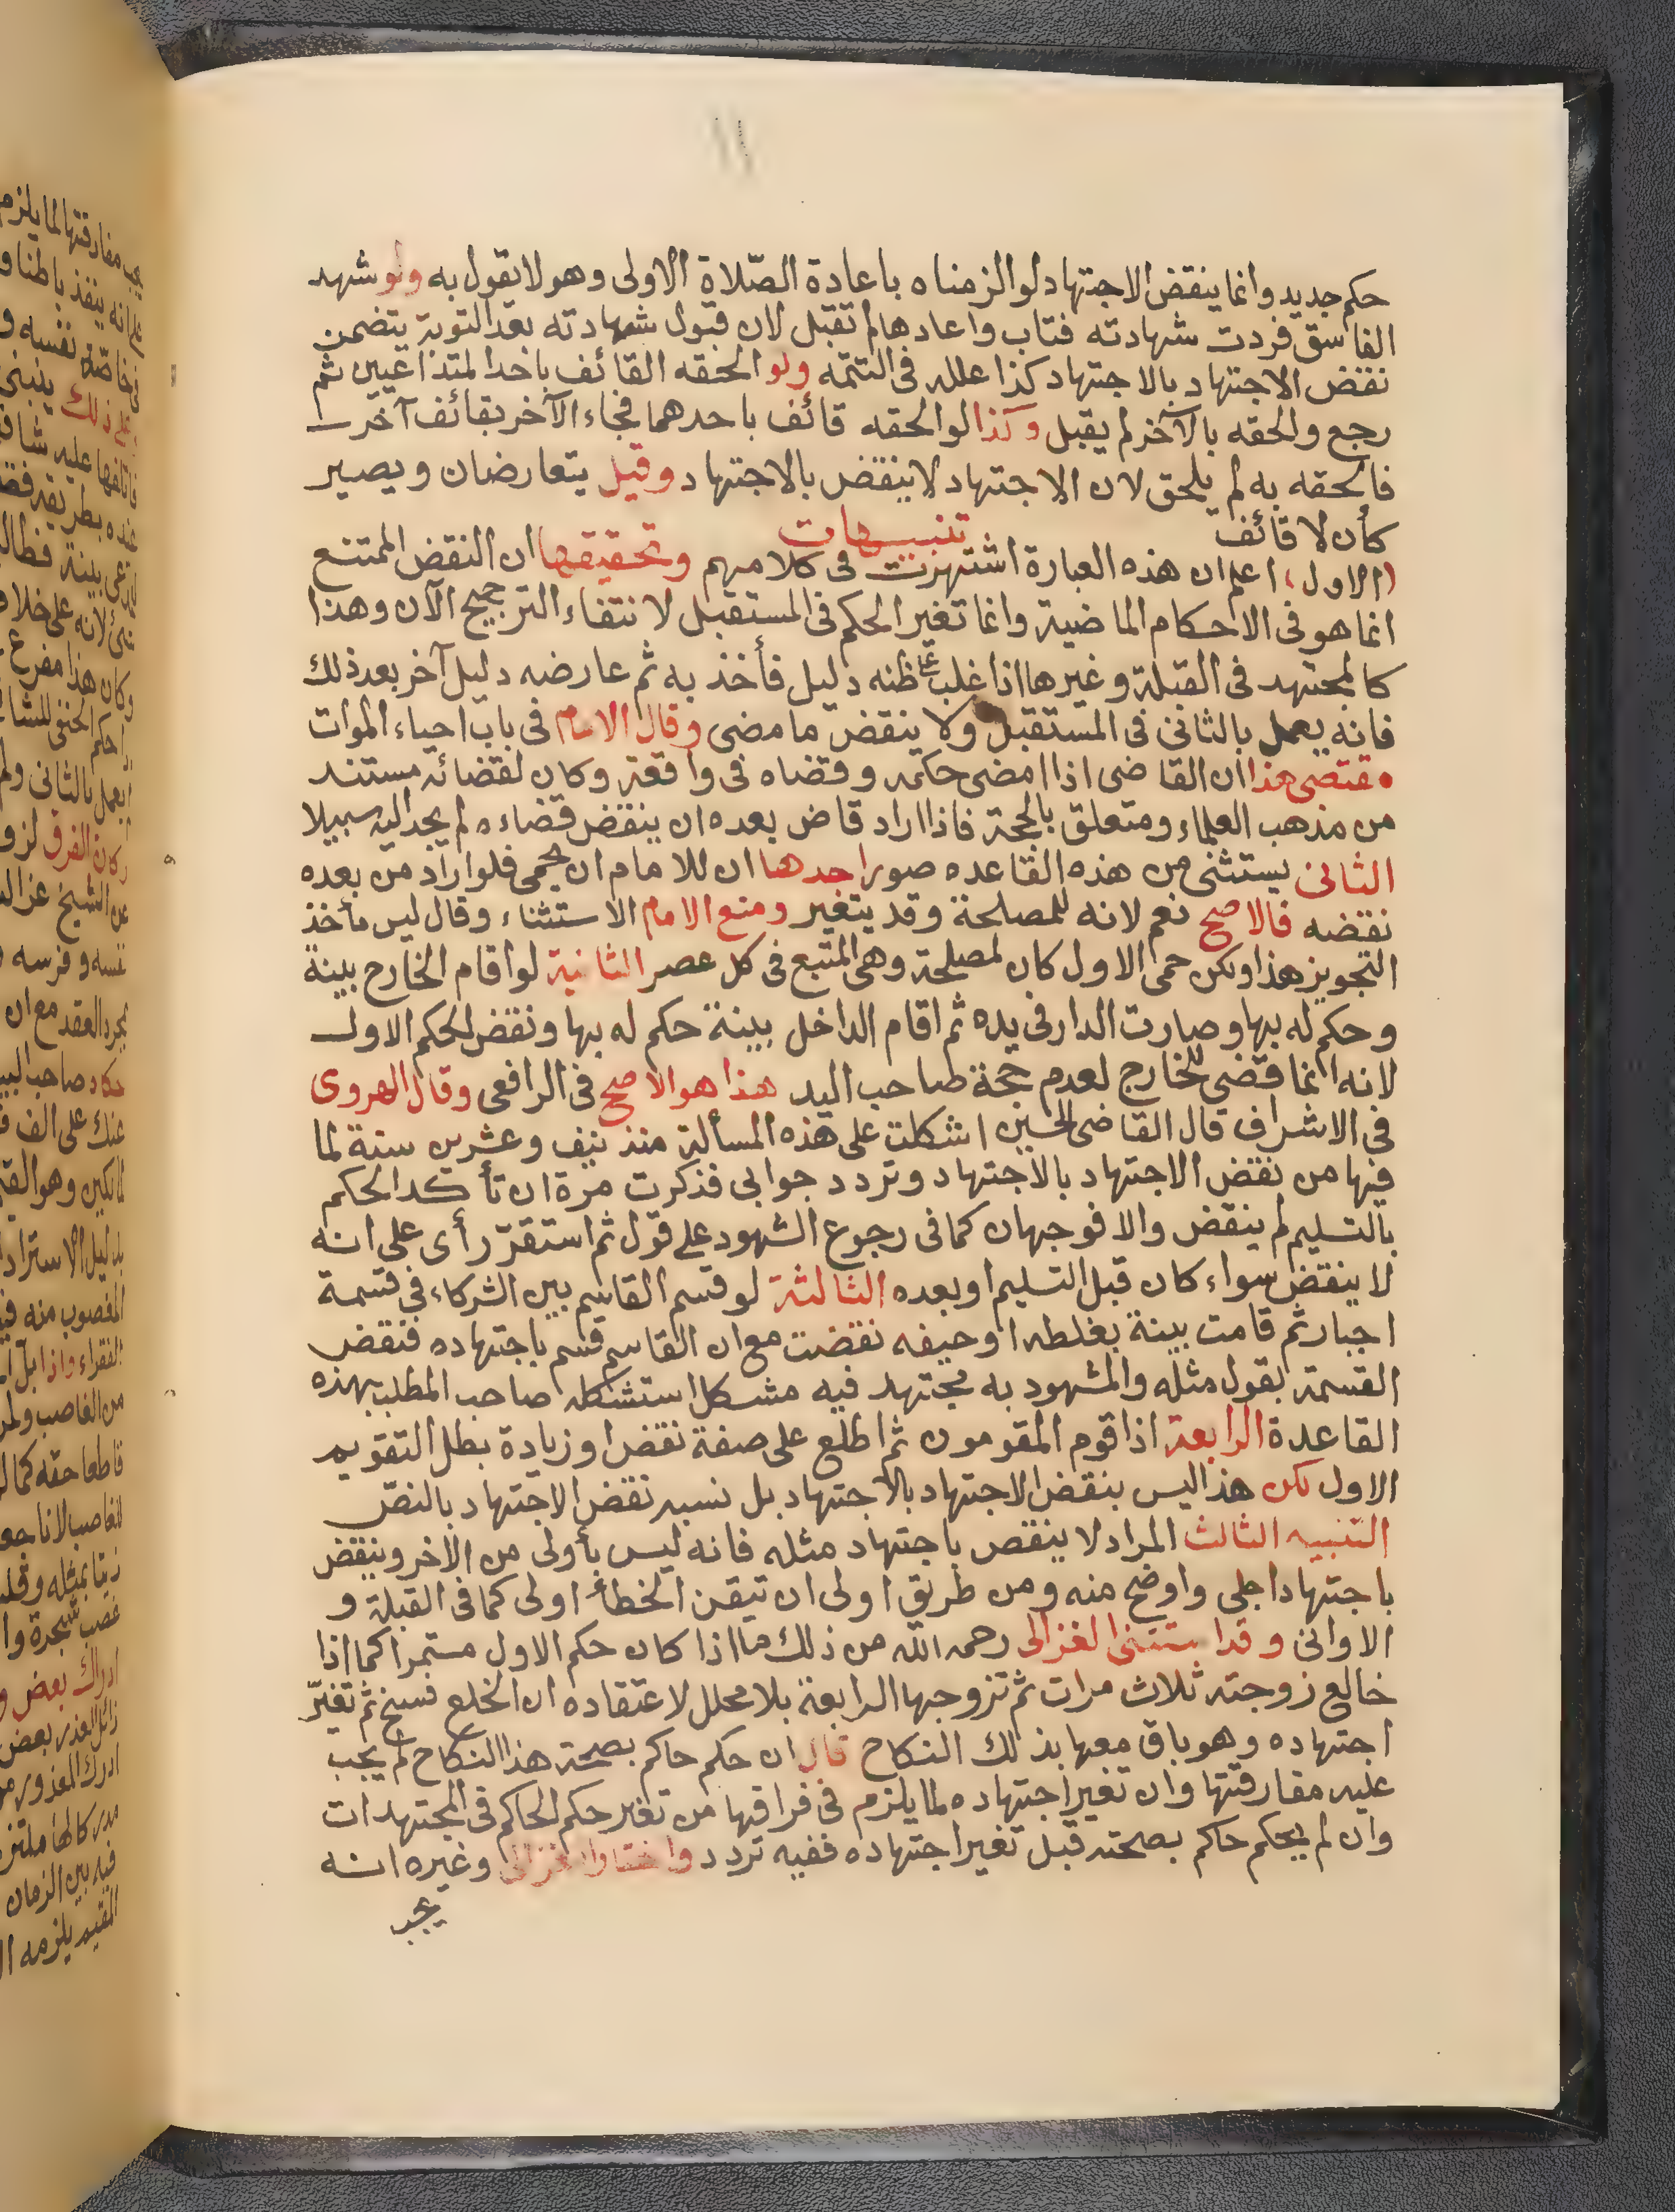 ١١
حكم جديد وانما ينقض الاجتهاد لو الزمناه باعادة الصّلاة الاولى وهو لا يقول به ولو شهد
الفاسق فردت شهادته فتاب واعادها لم تقبل لان قبول شهادته بعد التوبة يتضمن
نقض الاجتهاد بالاجتهاد كذا علله فى التتمه ولو الحقه القائف باحد المتداعيين ثم
رجع والحقه بالآخر لم يقبل وكذا لو الحقه قائف باحدهما فجاء الآخر بقائف آخر
فالحقه به لم يلحق لان الاجتهاد لا ينقض بالاجتهاد وقيل يتعارضان ويصير
كأن لا قائف
تنبيهات
(الاول) اعلم ان هذه العبارة اشتهرت فى كلامهم وتحقيقها ان النقض الممتنع
انما هو فى الاحكام الماضية وانما تغير الحكم فى المستقبل لانتفاء الترجيح الآن وهذا
كالمجتهد فى القبلة وغيرها اذا غلب على ظنه دليل فأخذ به ثم عارضه دليل آخر بعد ذلك
فانه يعمل بالثانى فى المستقبل ولا ينقض ما مضى وقال الامام فى باب احياء الموات
مقتضى هذا ان القاضى اذا امضى حكمه وقضاه فى واقعة وكان لقضائه مستند
من مذهب العلماء ومتعلق بالحجة فاذا اراد قاض بعده ان ينقض قضاءه لم يجد اليه سبيلا
الثانى يستثنى من هذه القاعده صور احدها ان للامام ان يحمى فلو اراد من بعده
نقضه فالاصح نعم لانه للمصلحة وقد يتغير ومنع الامام الاستثناء وقال ليس مأخذ
التجويز هذا ولكن حمى الاول كان لمصلحة وهى المتبع فى كل عصر الثانية لو اقام الخارج بينة
وحكم له بها وصارت الدار فى يده ثم اقام الداخل بينة حكم له بها ونقض الحكم الاول
لانه انما قضى للخارج لعدم حجة صاحب اليد هذا هو الاصح فى الرافعى وقال الهروى
فى الاشراف قال القاضى الحسين اشكلت على هذه المسألة منذ نيف وعشرين سنة لما
فيها من نقض الاجتهاد بالاجتهاد وتردد جوابى فذكرت مرة ان تأكد الحكم
بالتسليم لم ينقض والا فوجهان كما فى رجوع الشهود على قول ثم استقرّ رأى على انه
لا ينقض سواء كان قبل التسليم او بعده الثالثة لو قسم القاسم بين الشركاء فى قسمة
اجبار ثم قامت بينة بغلطه او حيفه نقضت مع ان القاسم قسم باجتهاده فنقض
القسمة بقول مثله والمشهود به مجتهد فيه مشكل استشكله صاحب المطلب بهذه
القاعدة الرابعة اذا قوم المقومون ثم اطلع على صفة نقض او زيادة بطل التقويم
الاول لكن هذا ليس بنقض الاجتهاد بالاجتهاد بل نسبه نقض الاجتهاد بالنصّ
التنبيه الثالث المراد لا ينقض باجتهاد مثله فانه ليس بأولى من الآخر وينقض
باجتهاد اجلى واوضح منه ومن طريق اولى ان تيقن الخطأ اولى كما فى القبلة و
الاوانى وقد استثنى الغزالى رحمه الله من ذلك ما اذا كان حكم الاول مستمرا كما اذا
خالع زوجته ثلاث مرات ثم تزوجها الرابعة بلا محلل لاعتقاده ان الخلع فسخ ثم تغيرّ
اجتهاده وهو باق معها بذلك النكاح قال ان حكم حاكم بصحة هذا النكاح لم يجب
عليه مفارقتها وان تغير اجتهاده لما يلزم فى فراقها من تغير حكم الحاكم فى المجتهدات
وان لم يحكم حاكم بصحته قبل تغير اجتهاده ففيه تردد واختار الغزالى وغيره انه
يجب